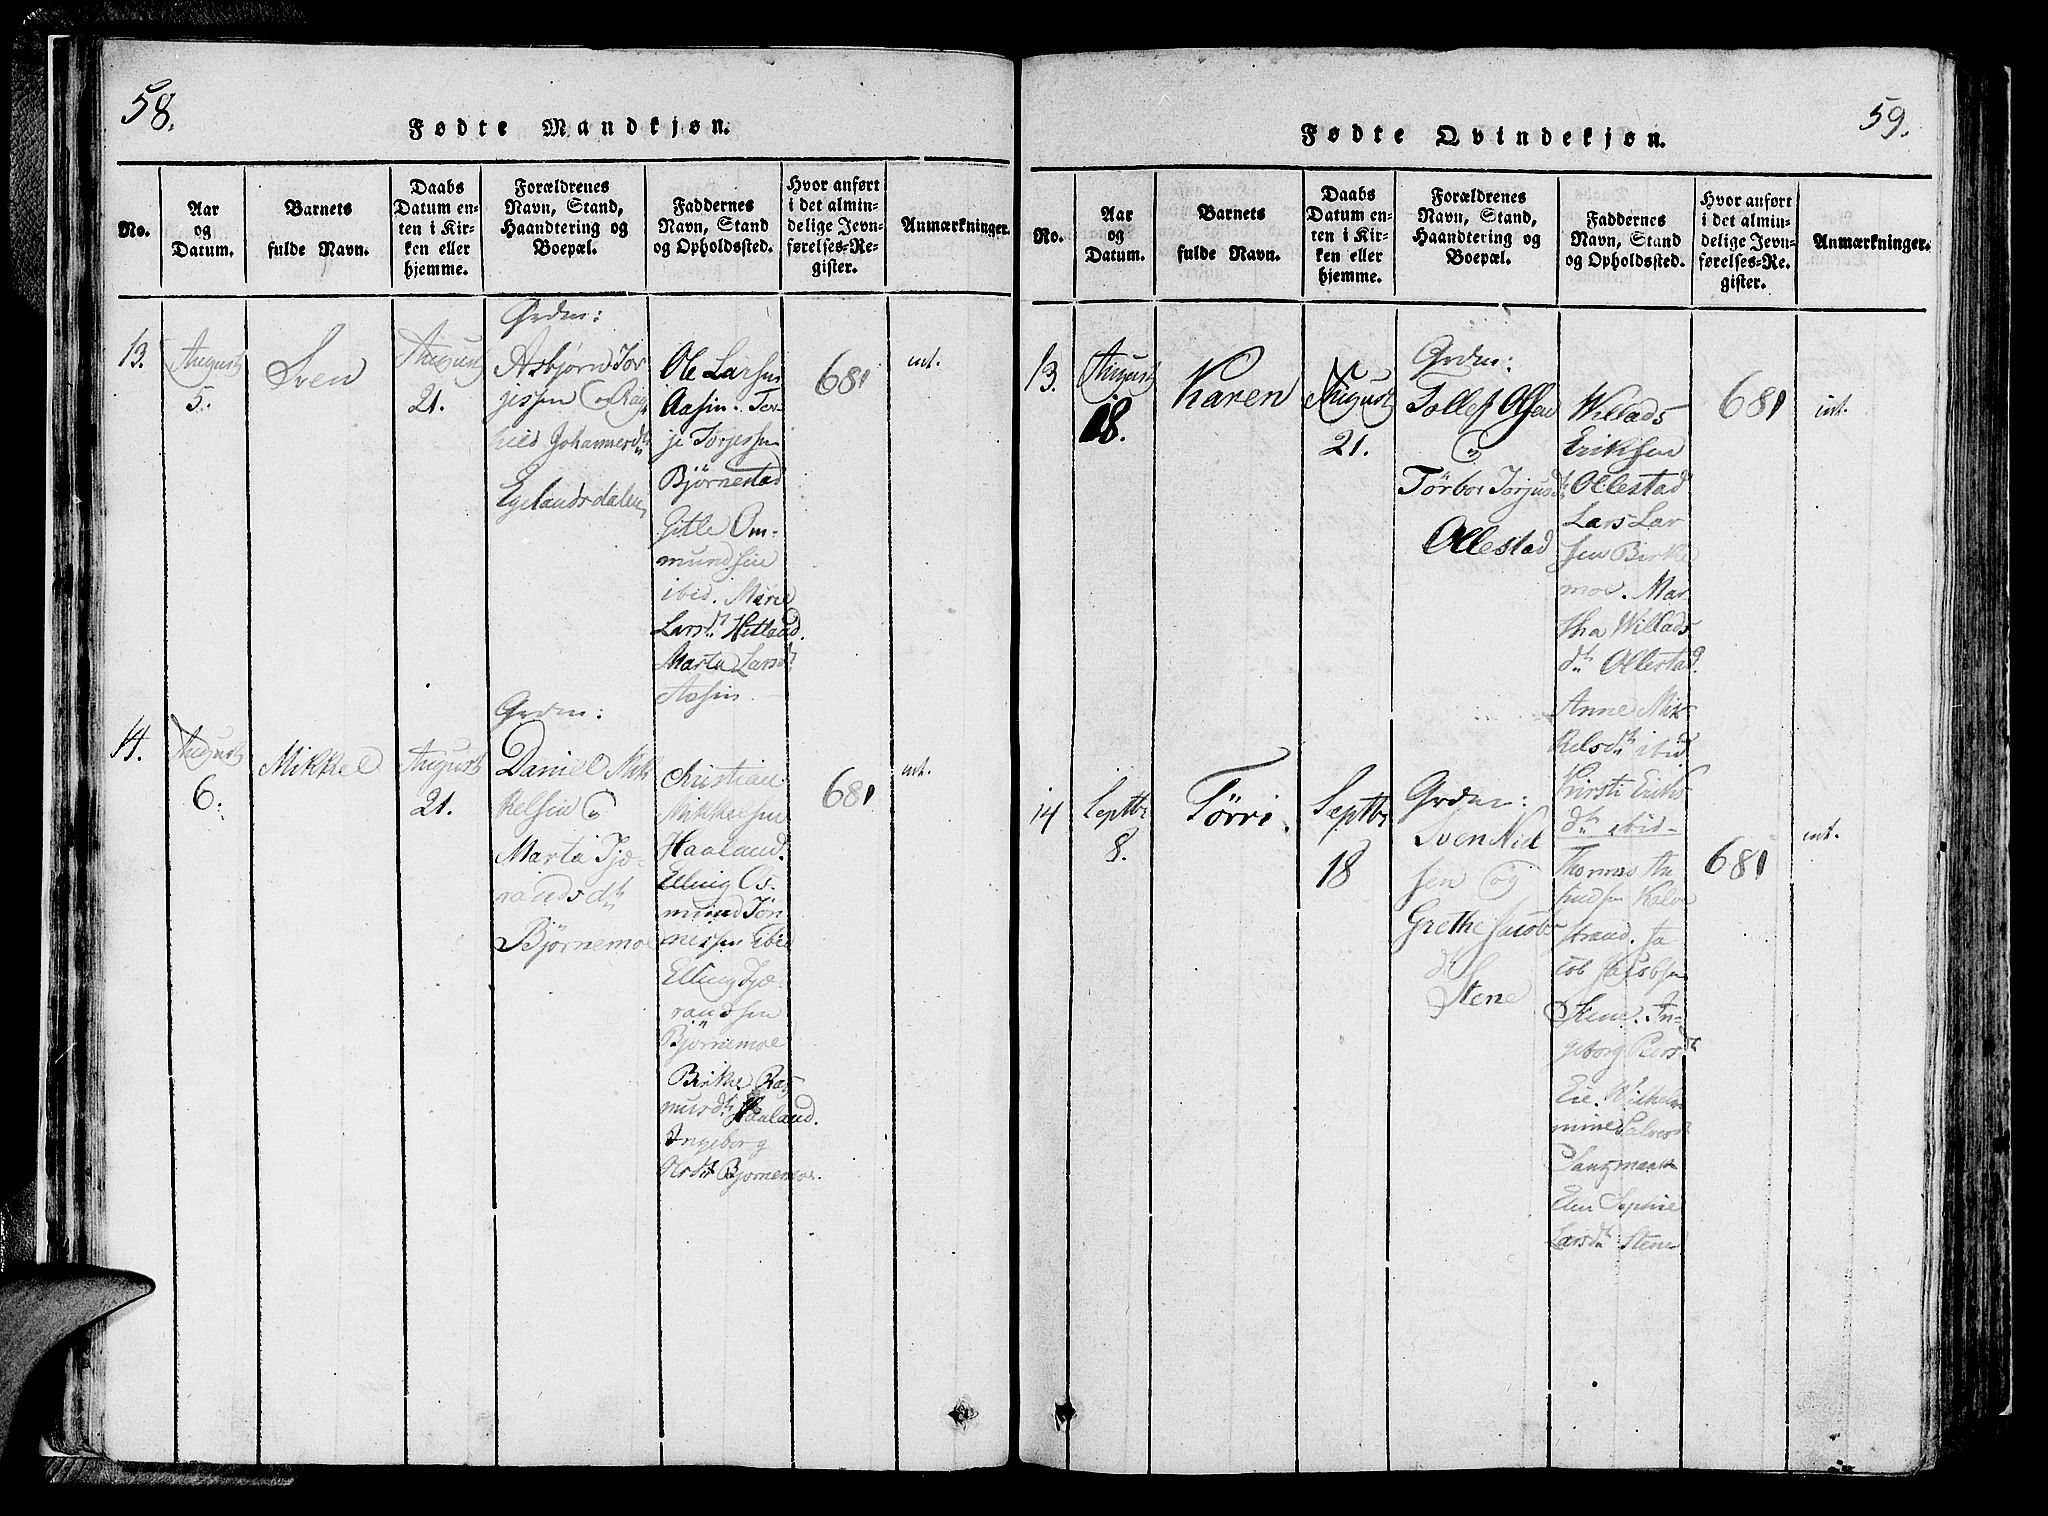 58.
Fødte Mandkjøn.
No.
Aar
og
Datum.
Barnets
fulde Navn.
Daabs
Datum en-
ten i Kir-
ken eller
hjemme.
Forældrenes
Navn, Stand,
Haandtering og
Boepæl.
Faddernes
Navn, Stand
og Opholdssted.
Hvor anført
i det almin-
delige Jevn-
førelses-Re-
gister.
Anmærkninger.
13.
August
5.
Sven
August
21.
Grdm:
Asbjørn Tor
jessen og Rag
hild Johannesdtr
Egelandsdalen
Ole Larsen
Aasin. Ter-
je Torjessen
Bjørnestad
Gitle Om-
mundsen
ibid. Marie
Larsdtr Hetland.
Marta Larsdtr
Aasin
681
int.
14.
August
6.
Mikkel
August
21.
Grdm:
Daniel Mik
kelsen og
Marta Tjæ-
randsdtr
Bjørnemoe
Christian
Mikkelsen
Haaland.
Elling Os-
mund Tøn
nessen ibid
Elling Tjæ-
randsen
Bjørnemoe
Birthe Ras
musdtr Haaland.
Ingeborg
Olsdtr Bjørnemoe.
681
int.
59.
Fødte Qvindekjøn.
No.
Aar
og
Datum.
Barnets
fulde Navn.
Daabs
Datum en-
ten i Kir-
ken eller
hjemme.
Forældrenes
Navn, Stand,
Haandtering og
Boepæl.
Faddernes
Navn, Stand
og Opholdssted.
Hvor anført
i det almin-
delige Jevn-
førelses-Re-
gister.
Anmærkninger.
13.
August
18.
Karen
August
21.
Grdm:
Tollef Olsen
og
Tørbor Torjusdtr
Ollestad
Willads
Eriksen
Ollestad
Lars Lar
sen Birke
moe. Mar
tha Willads
dtr Ollestad.
Anne Mik-
kelsdtr ibid
Kirsti Eriks
dtr ibid
681
int.
14
Septbr
8.
Tørri.
Septbr
18
Grdm:
Sven Niel
sen og
Grethe Jacobs
dtr
Stene
Thomas An
findsen Kalve
strand. Ja
cob Jacobsen
Stene. In-
geborg Persdtr
Eie. Wilhel
mine Salvesdtr
Elen Sophie
Larsdtr Stene
681
int.